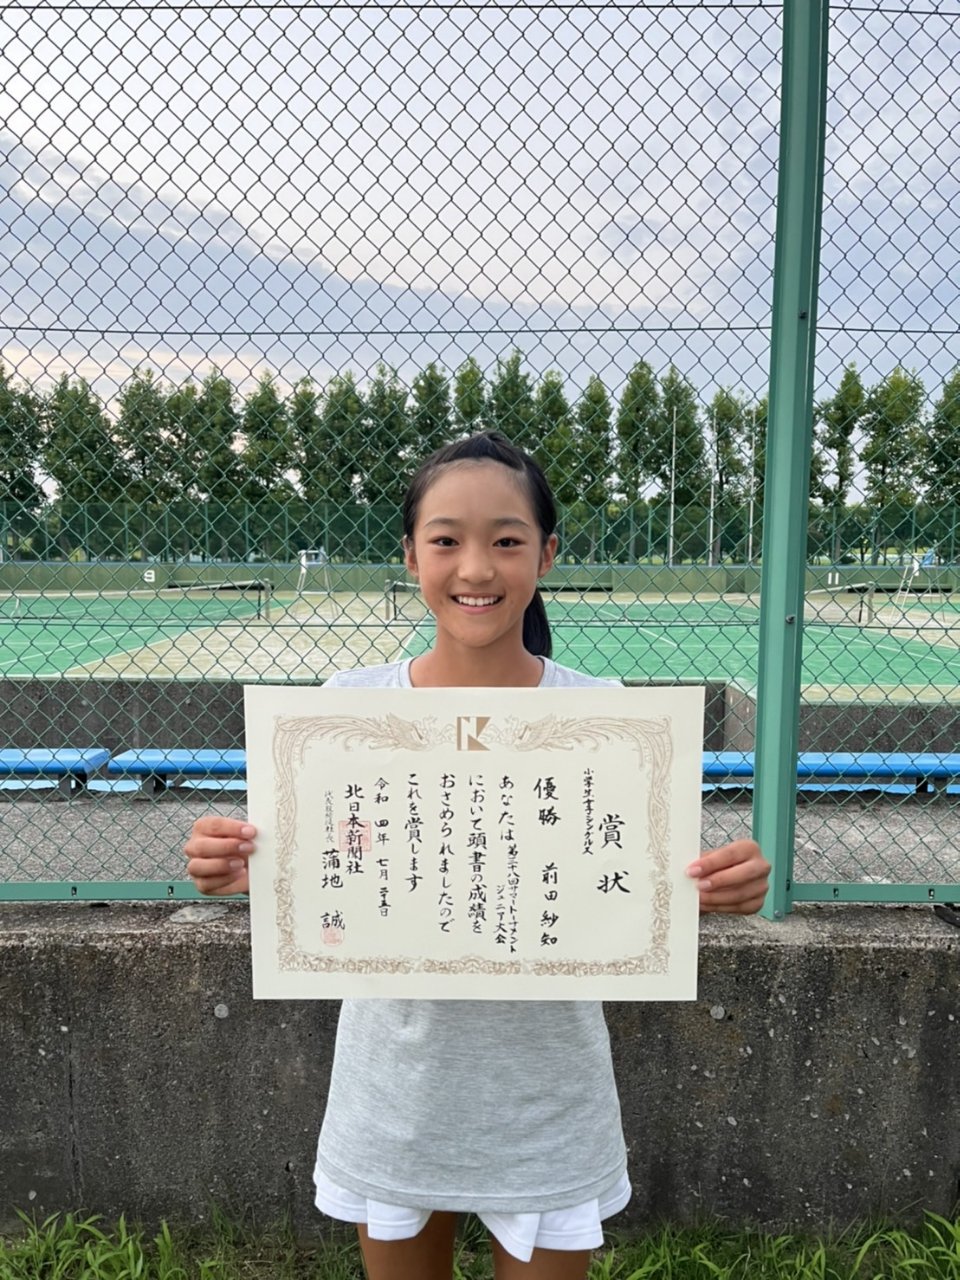 賞状
小学生女子シングルス
優勝 前田紗知
あなたは第三十八回サマートーナメント
ジュニア大会
において頭書の成績を
おさめられましたので
これを賞します
令和四年七月二十五日
北日本新聞社
代表取締役社長 蒲地 誠
9
11